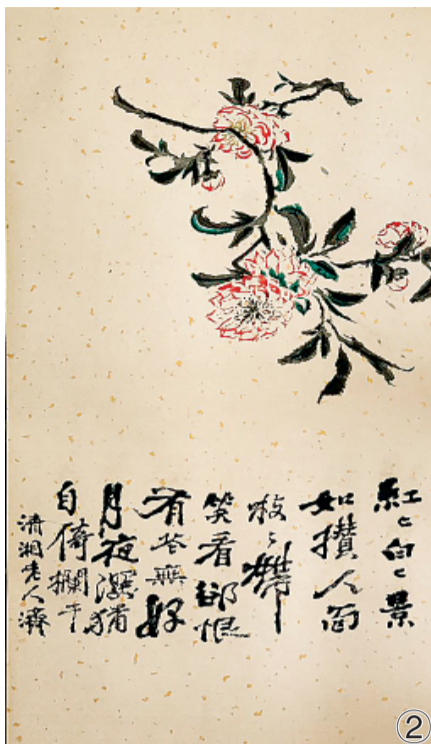 紅〻白〻景
如攢人面
枝〻帶
笑看卻恨
有花無好
月夜深猶
自倚欄干
清湘老人濟
②